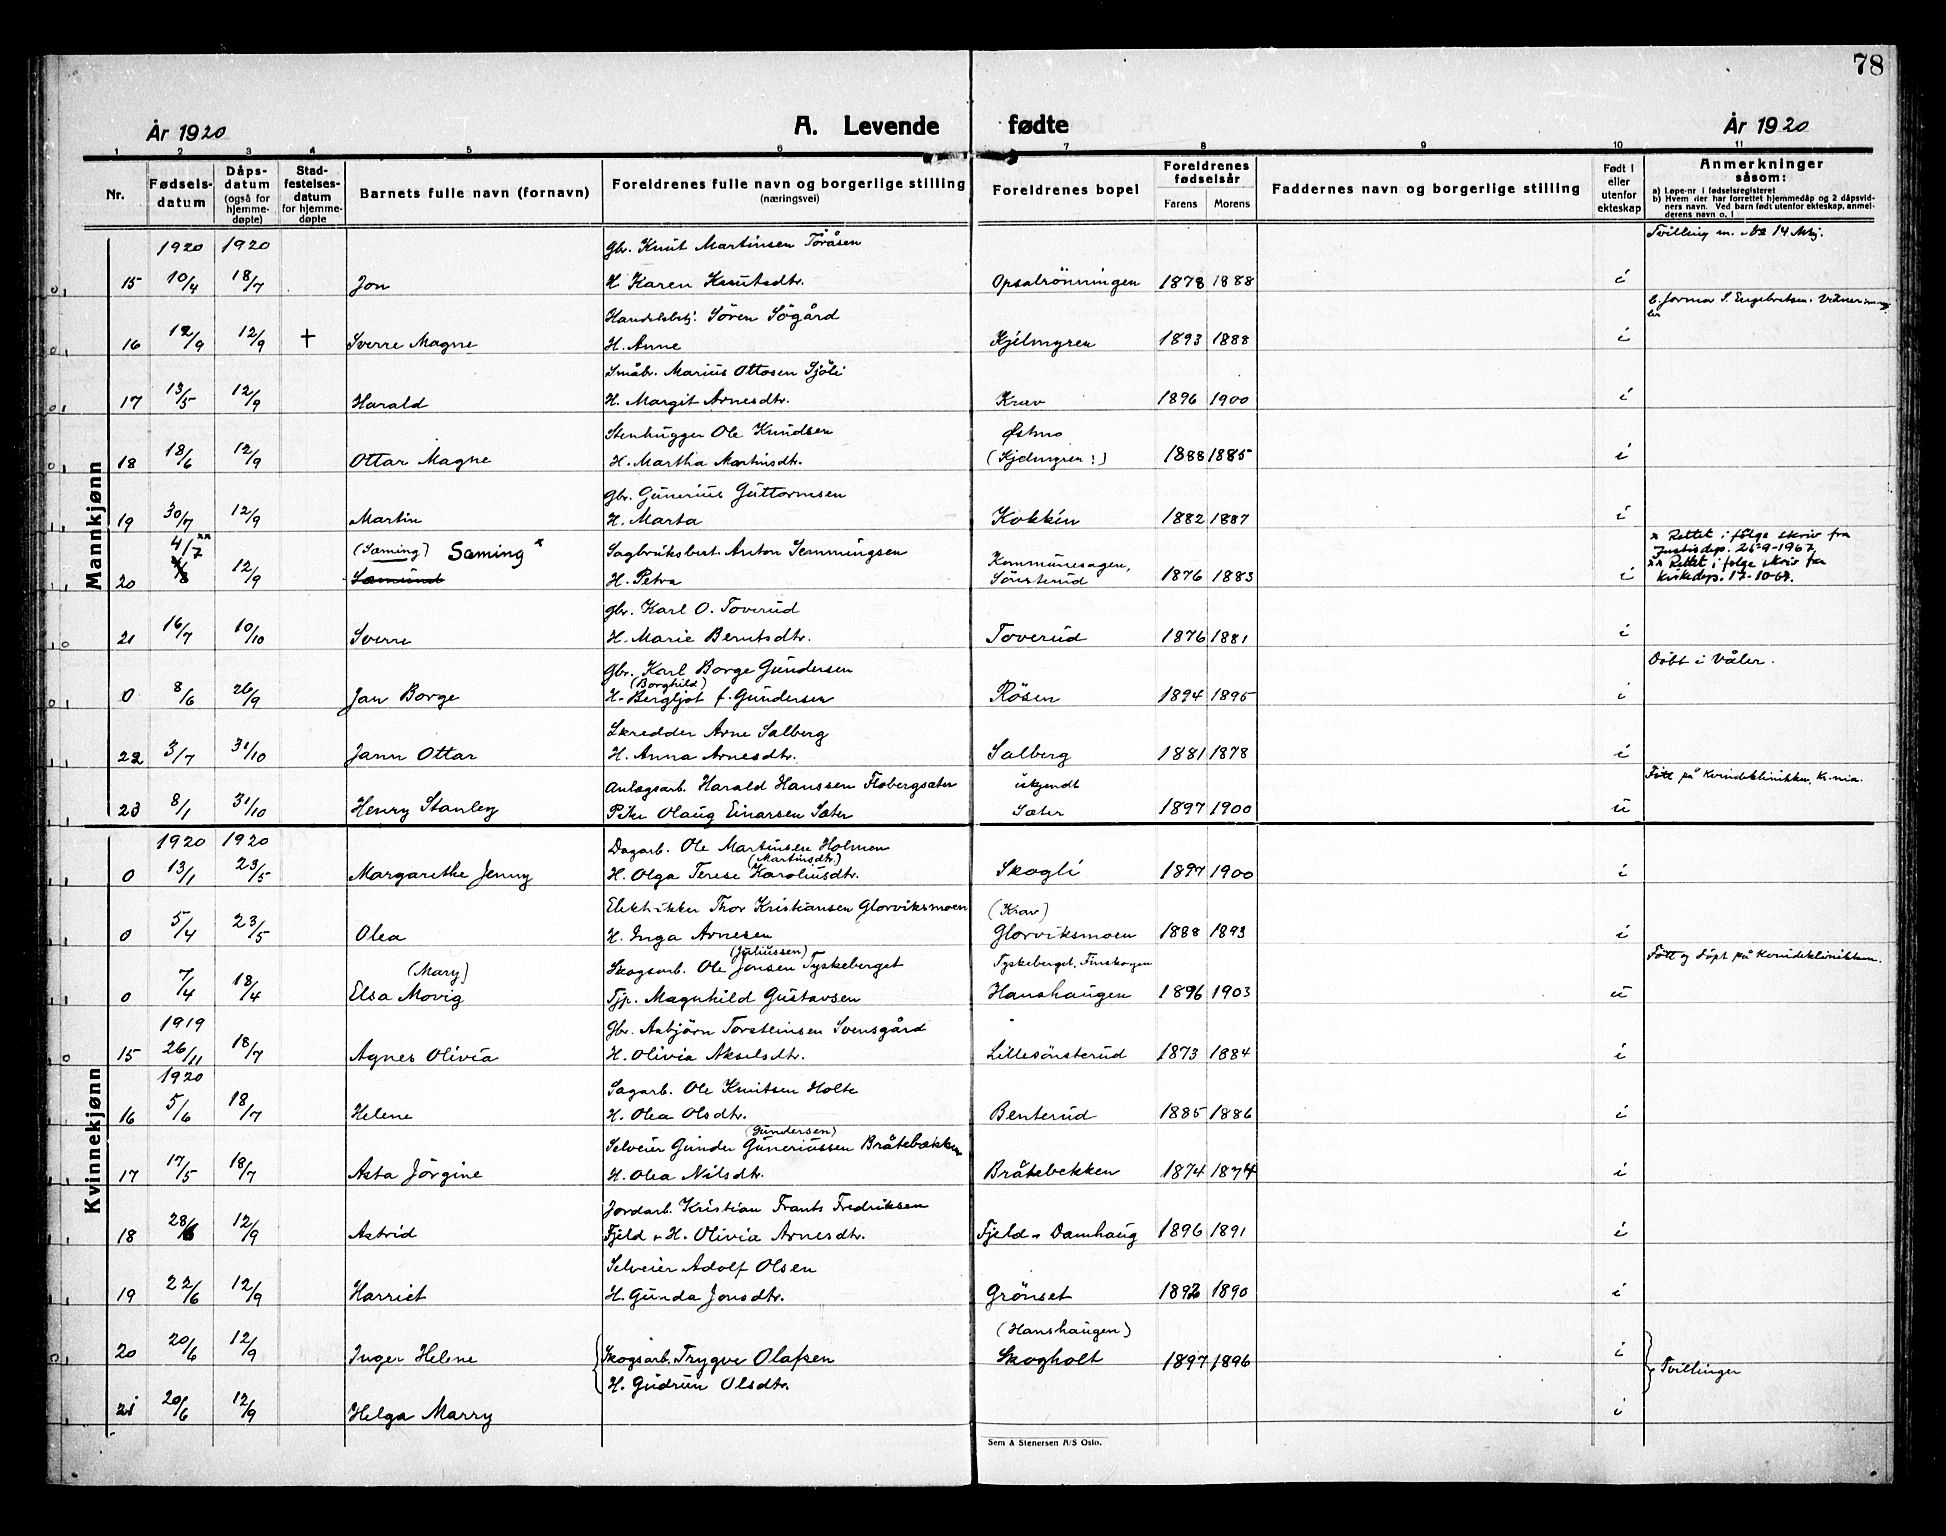 78
År 1920 A. Levende fødte År 1920
1 2 3 4 5 6 7 8 9 10 11
Nr. Fødsels-datum Dåps-datum (også for hjemme-døpte) Stad-festelses-datum for hjemme-døpte Barnets fulle navn (fornavn) Foreldrenes fulle navn og borgerlige stilling (næringsvei) Foreldrenes bopel Foreldrenes fødselsår Farens Morens Faddernes navn og borgerlige stilling Født i eller utenfor ekteskap Anmerkninger såsom:
a) Løpe-nr i fødselsregisteret
b) Hvem der har forrettet hjemmedåp og 2 dåpsvid-
ners navn. Ved barn født utenfor ekteskap, anmel-
derens navn o. l.
Mannkjønn
1920 1920 Gbr. Knut Martinsen Töråsen Tvilling m.
15 10/4 18/7 Jon H. Karen Knutsdtr. Opsalrönningen 1878 1888 i
Handelsbetj. Sören Sögård S. Engebretsen.
16 12/9 12/9 + Sverre Magne H. Anne Kjelmyren 1893 1888 i
Småbr. Marius Ottosen Sjöli
17 13/5 12/9 Harald H. Margit Arnesdtr. Krav 1896 1900 i
Stenhugger Ole Knudsen Østmo
18 18/6 12/9 Ottar Magne H. Martha Martinsdtr. (Kjelmyren:) 1888 1885 i
Gbr. Gunerius Guttormsen
19 30/7 12/9 Martin H. Marta Kokkin 1882 1887 i
4/7 xx (Sæming) Sæming x Sagbruksbest. Anton Semmingsen Kommunesagen, x Rettet i følge skriv fra
Justisdep. 25-9-1967
20 12/9 Sæmund H. Petra Sönsterud 1876 1883 i xx Rettet i følge skriv fra
Kirkedep. 17-10-67.
Gbr. Karl O. Toverud
21 16/7 10/10 Sverre H. Marie Berntsdtr. Toverud 1876 1881 i
Gbr. Karl Borge Gundersen Döbt i Våler.
(Borghild)
0 8/6 26/9 Jan Borge H. Bergljot f. Gundersen Røsen 1894 1895 i
Skredder Arne Salberg
22 3/7 31/10 Jann Ottar H. Anna Arnesdtr. Salberg 1881 1878 i
Anlagsarb. Harald Hanssen Flobergsæter Født på Kvindeklinikken, K.nia.
23 8/1 31/10 Henry Stanley Pike Olaug Einarsen Sæter Sæter 1897 1900 u
Kvinnekjønn
1920 1920 Dagarb. Ole Martinsen Holmen
(Martinsdtr)
0 13/1 23/5 Margarethe Jenny H. Olga Terese Karoliusdtr. Skogli 1897 1900 i
Elektriker Thor Kristiansen Glorviksmoen (Krav)
0 5/4 23/5 Olea H. Inga Arnesen Glorviksmoen 1888 1893 i
(Juliussen)
(Mary) Skogsarb. Ole Jonsen Tyskeberget Tyskeberget, Finskogen Født og döpt på Kvindeklinikken.
0 7/4 18/4 Elsa Movig Tjp. Magnhild Gustavsen Hanshaugen 1896 1903 u
1919 Gbr. Asbjörn Torsteinsen Svensgård
15 26/11 18/7 Agnes Olivia H. Olivia Akselsdtr. Lillesönsterud 1873 1884 i
1920 Sagarb. Ole Knutsen Holte
16 5/6 18/7 Helene H. Olea Olsdtr. Benterud 1885 1886 i
(Gundersen)
Selveier Gunder Guneriussen Bråtebækken
17 17/5 18/7 Asta Jörgine H. Olea Nilsdtr. Bråtebekken 1874 1874 i
Jordarb. Kristian Frants Fredriksen
18 28/6 12/9 Astrid Fjeld & H. Olivia Arnesdtr. Fjeld Damhaug 1896 1891 i
Selveier Adolf Olsen
19 22/6 12/9 Harriet H. Gunda Jonsdtr. Grönset 1892 1890 i
(Hanshaugen)
20 20/6 12/9 Inger Helene Skogsarb. Trygve Olafsen Skogholt 1897 1896 i
H. Gudrun Olsdtr. Tvillinger
21 20/6 12/9 Helga Marry i
Sem & Stenersen A/S Oslo.